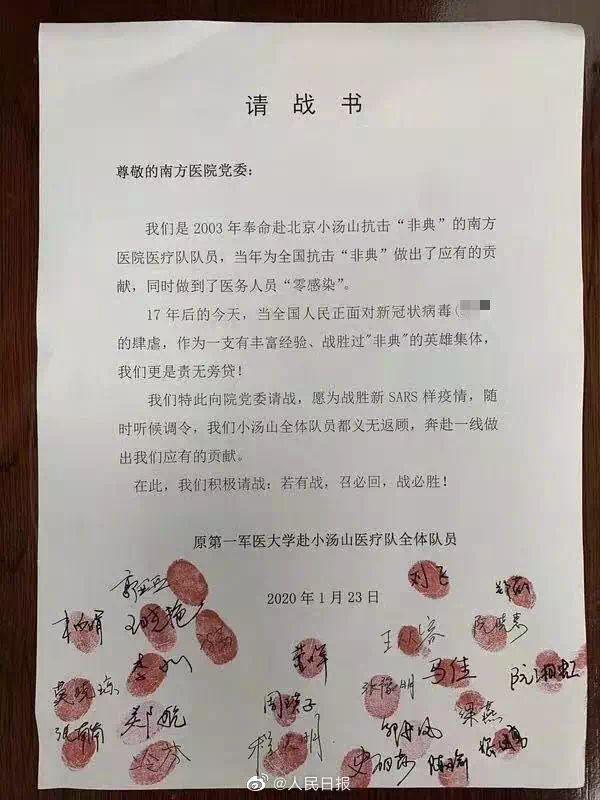 请战书
尊敬的南方医院党委：
我们是2003年奉命赴北京小汤山抗击“非典”的南方
医院医疗队队员，当年为全国抗击“非典”做出了应有的贡
献，同时做到了医务人员“零感染”。
17年后的今天，当全国人民正面对新冠状病毒(
的肆虐，作为一支有丰富经验、战胜过"非典"的英雄集体，
我们更是责无旁贷！
我们特此向院党委请战，愿为战胜新SARS样疫情，随
时听候调令，我们小汤山全体队员都义无返顾，奔赴一线做
出我们应有的贡献。
在此，我们积极请战：若有战，召必回，战必胜！
原第一军医大学赴小汤山医疗队全体队员
刘飞
2020年1月23日
马佳
张晓明
梁燕
@人民日报